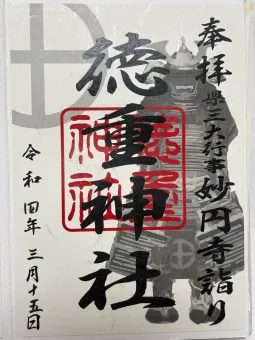 奉拝 県三大行事 妙円寺詣り
徳重神社
徳重
神社
令和 四年 三月十五日